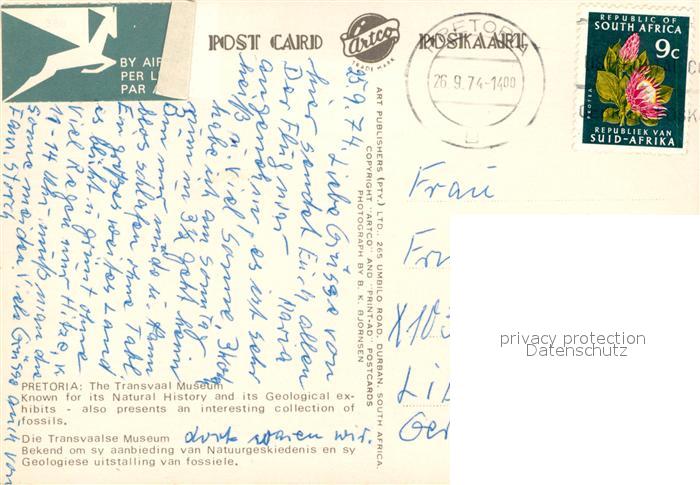 BY AIR
PER L
PAR A
POST CARD
Artco
TRADE MARK
POSKAART
PRETORIA
26.9.74-1400
REPUBLIC OF
SOUTH AFRICA
9c
PROTEA
REPUBLIEK VAN
SUID-AFRIKA
25.9.74. Liebe Grüsse von
hier sendet Euch allen
Der Flug war
angenehm, es ist sehr
heiß. Viel Sonne,
habe ich am Sonntag
Bin nur müde u. kann
blos schlafen ohne Tabl.
Ein großes weites Land
es blüht u. grünt ohne
Viel Regen nur Hitze, v.
11-14 Uhr muß man die
Sonne meiden. Viel Grüsse auch von
Fam. Storch
ART PUBLISHERS (PTY.) LTD., 265 UMBILO ROAD, DURBAN, SOUTH AFRICA.
COPYRIGHT "ARTCO" AND "PRINT-AD" POSTCARDS
PHOTOGRAPH BY B. K. BJORNSEN
Frau
Fr
X103
Li
Ger
privacy protection
Datenschutz
PRETORIA: The Transvaal Museum
Known for its Natural History and its Geological ex-
hibits - also presents an interesting collection of
fossils.
dort waren wir.
Die Transvaalse Museum
Bekend om sy aanbieding van Natuurgeskiedenis en sy
Geologiese uitstalling van fossiele.